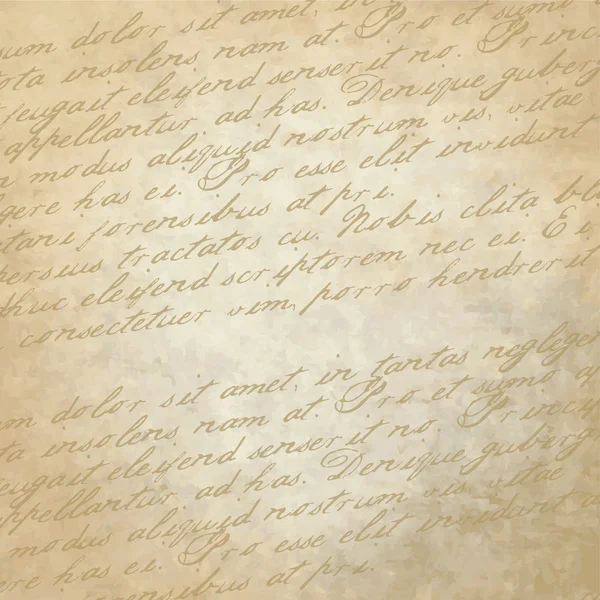 sum dolor sit amet, in
tota insolens nam at. Pro et sumo
feugait eleifend senserit no. Princ
appellantur ad has. Denique guberg
modus aliquid nostrum vis, vitae
gere has ei. Pro esse elit invidunt
tani forensibus at pri.
persius tractatos cu. Nobis clita bl
thuc eleifend scriptorem nec ei. Ei
consectetuer vim, porro hendrerit
um dolor sit amet, in tantas neglegen
ta insolens nam at. Pro et sumo a
feugait eleifend senserit no. Princip
appellantur ad has. Denique gubergr
modus aliquid nostrum vis, vitae
ere has ei. Pro esse elit invidunt a
ensibus at pri.